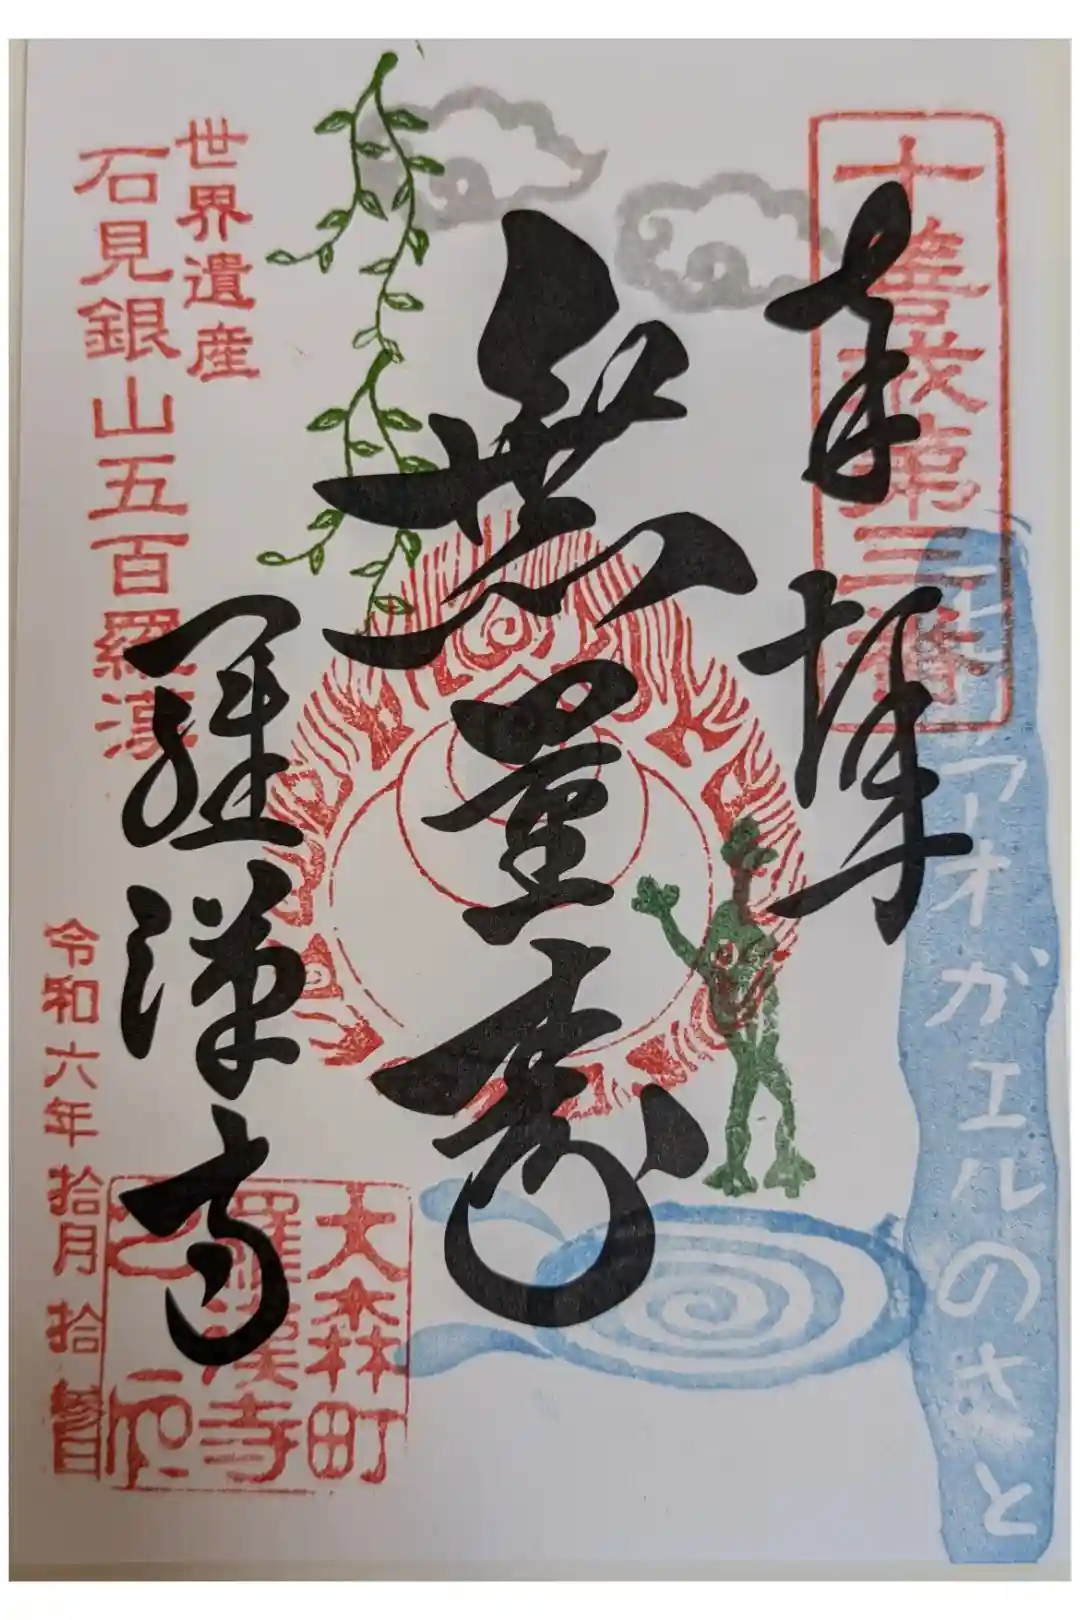 十善戒第三番
奉拝
モリアオガエルのさと
無量壽
世界遺産
石見銀山五百羅漢
羅漢寺
令和六年拾月拾
大森町
羅漢寺
之印